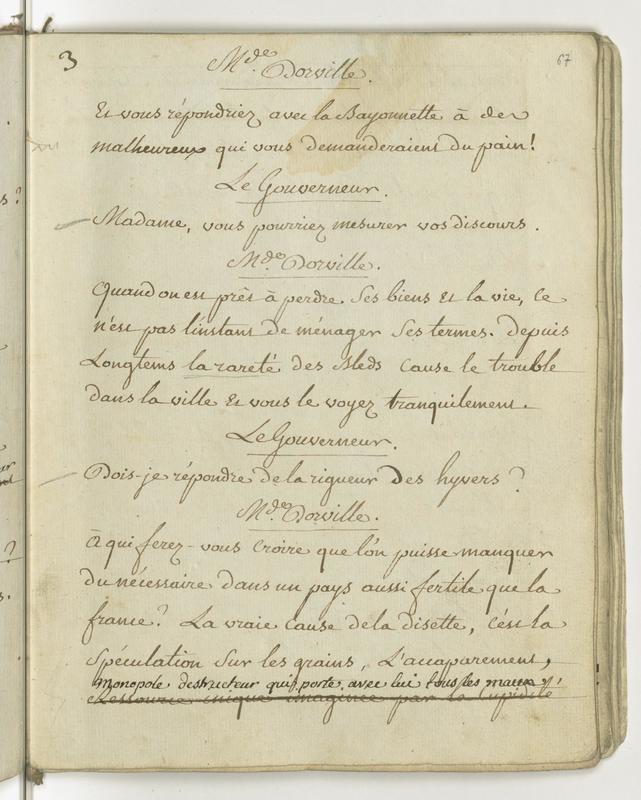 3
67
M.de Dorville.
Et vous répondriez avec la Bayonnette à des
malheureux qui vous demanderaient du pain!
Le Gouverneur.
Madame, vous pourriez mesurer vos discours.
M.de Dorville.
Quand on est près à perdre ses biens et la vie, ce
n'est pas l'instant de ménager ses termes. depuis
Longtems la rareté des Bleds cause le trouble
dans la ville et vous le voyez tranquilement.
Le Gouverneur.
Dois-je répondre de la rigueur des hyvers?
M.de Dorville.
à qui ferez-vous croire que l'on puisse manquer
du nécessaire dans un pays aussi fertile que la
france? La vraie cause de la disette, c'est la
spéculation sur les grains, L'accaparement,
Monopole destructeur qui porte avec lui tous les maux
Ressource unique imaginée par la Cupidité